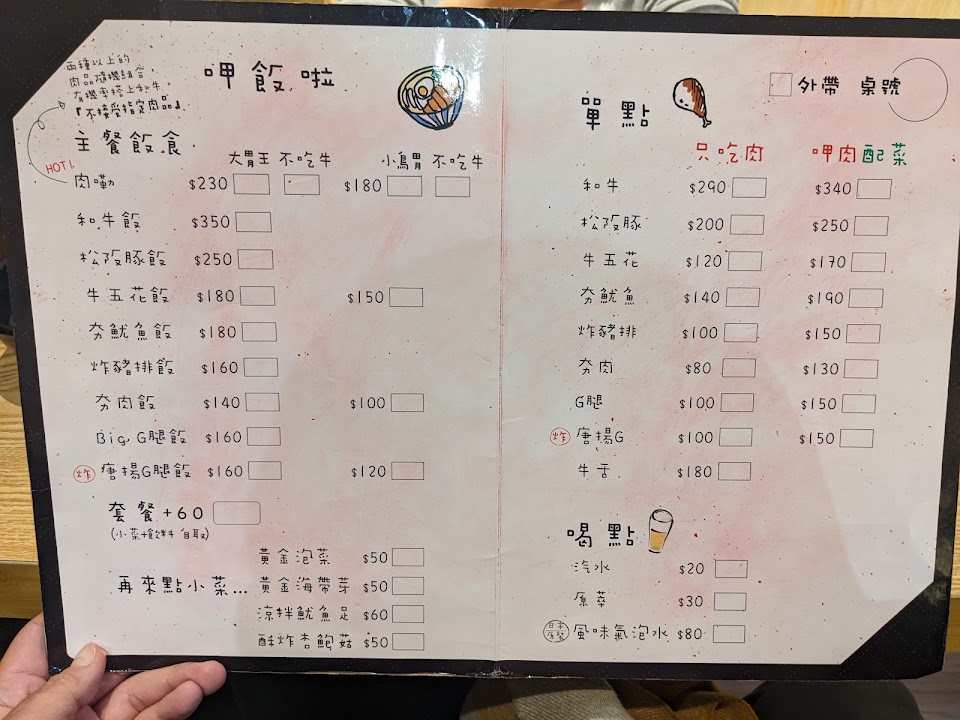 兩種以上的
肉品隨機組合
有機率搭上和牛
『不接受指定肉品』
呷飯啦
主餐飯食
大胃王 不吃牛 小鳥胃 不吃牛
HOT!
肉嘞 $230 $180
和牛飯 $350
松阪豚飯 $250
牛五花飯 $180 $150
夯魷魚飯 $180
炸豬排飯 $160
夯肉飯 $140 $100
Big G腿飯 $160
炸 唐揚G腿飯 $160 $120
套餐+60
(小菜+飲料 自取)
再來點小菜...
黃金泡菜 $50
黃金海帶芽 $50
涼拌魷魚足 $60
酥炸杏鮑菇 $50
外帶 桌號
單點
只吃肉 呷肉配菜
和牛 $290 $340
松阪豚 $200 $250
牛五花 $120 $170
夯魷魚 $140 $190
炸豬排 $100 $150
夯肉 $80 $130
G腿 $100 $150
炸 唐揚G $100 $150
牛舌 $180
喝點
汽水 $20
原萃 $30
風味氣泡水 $80